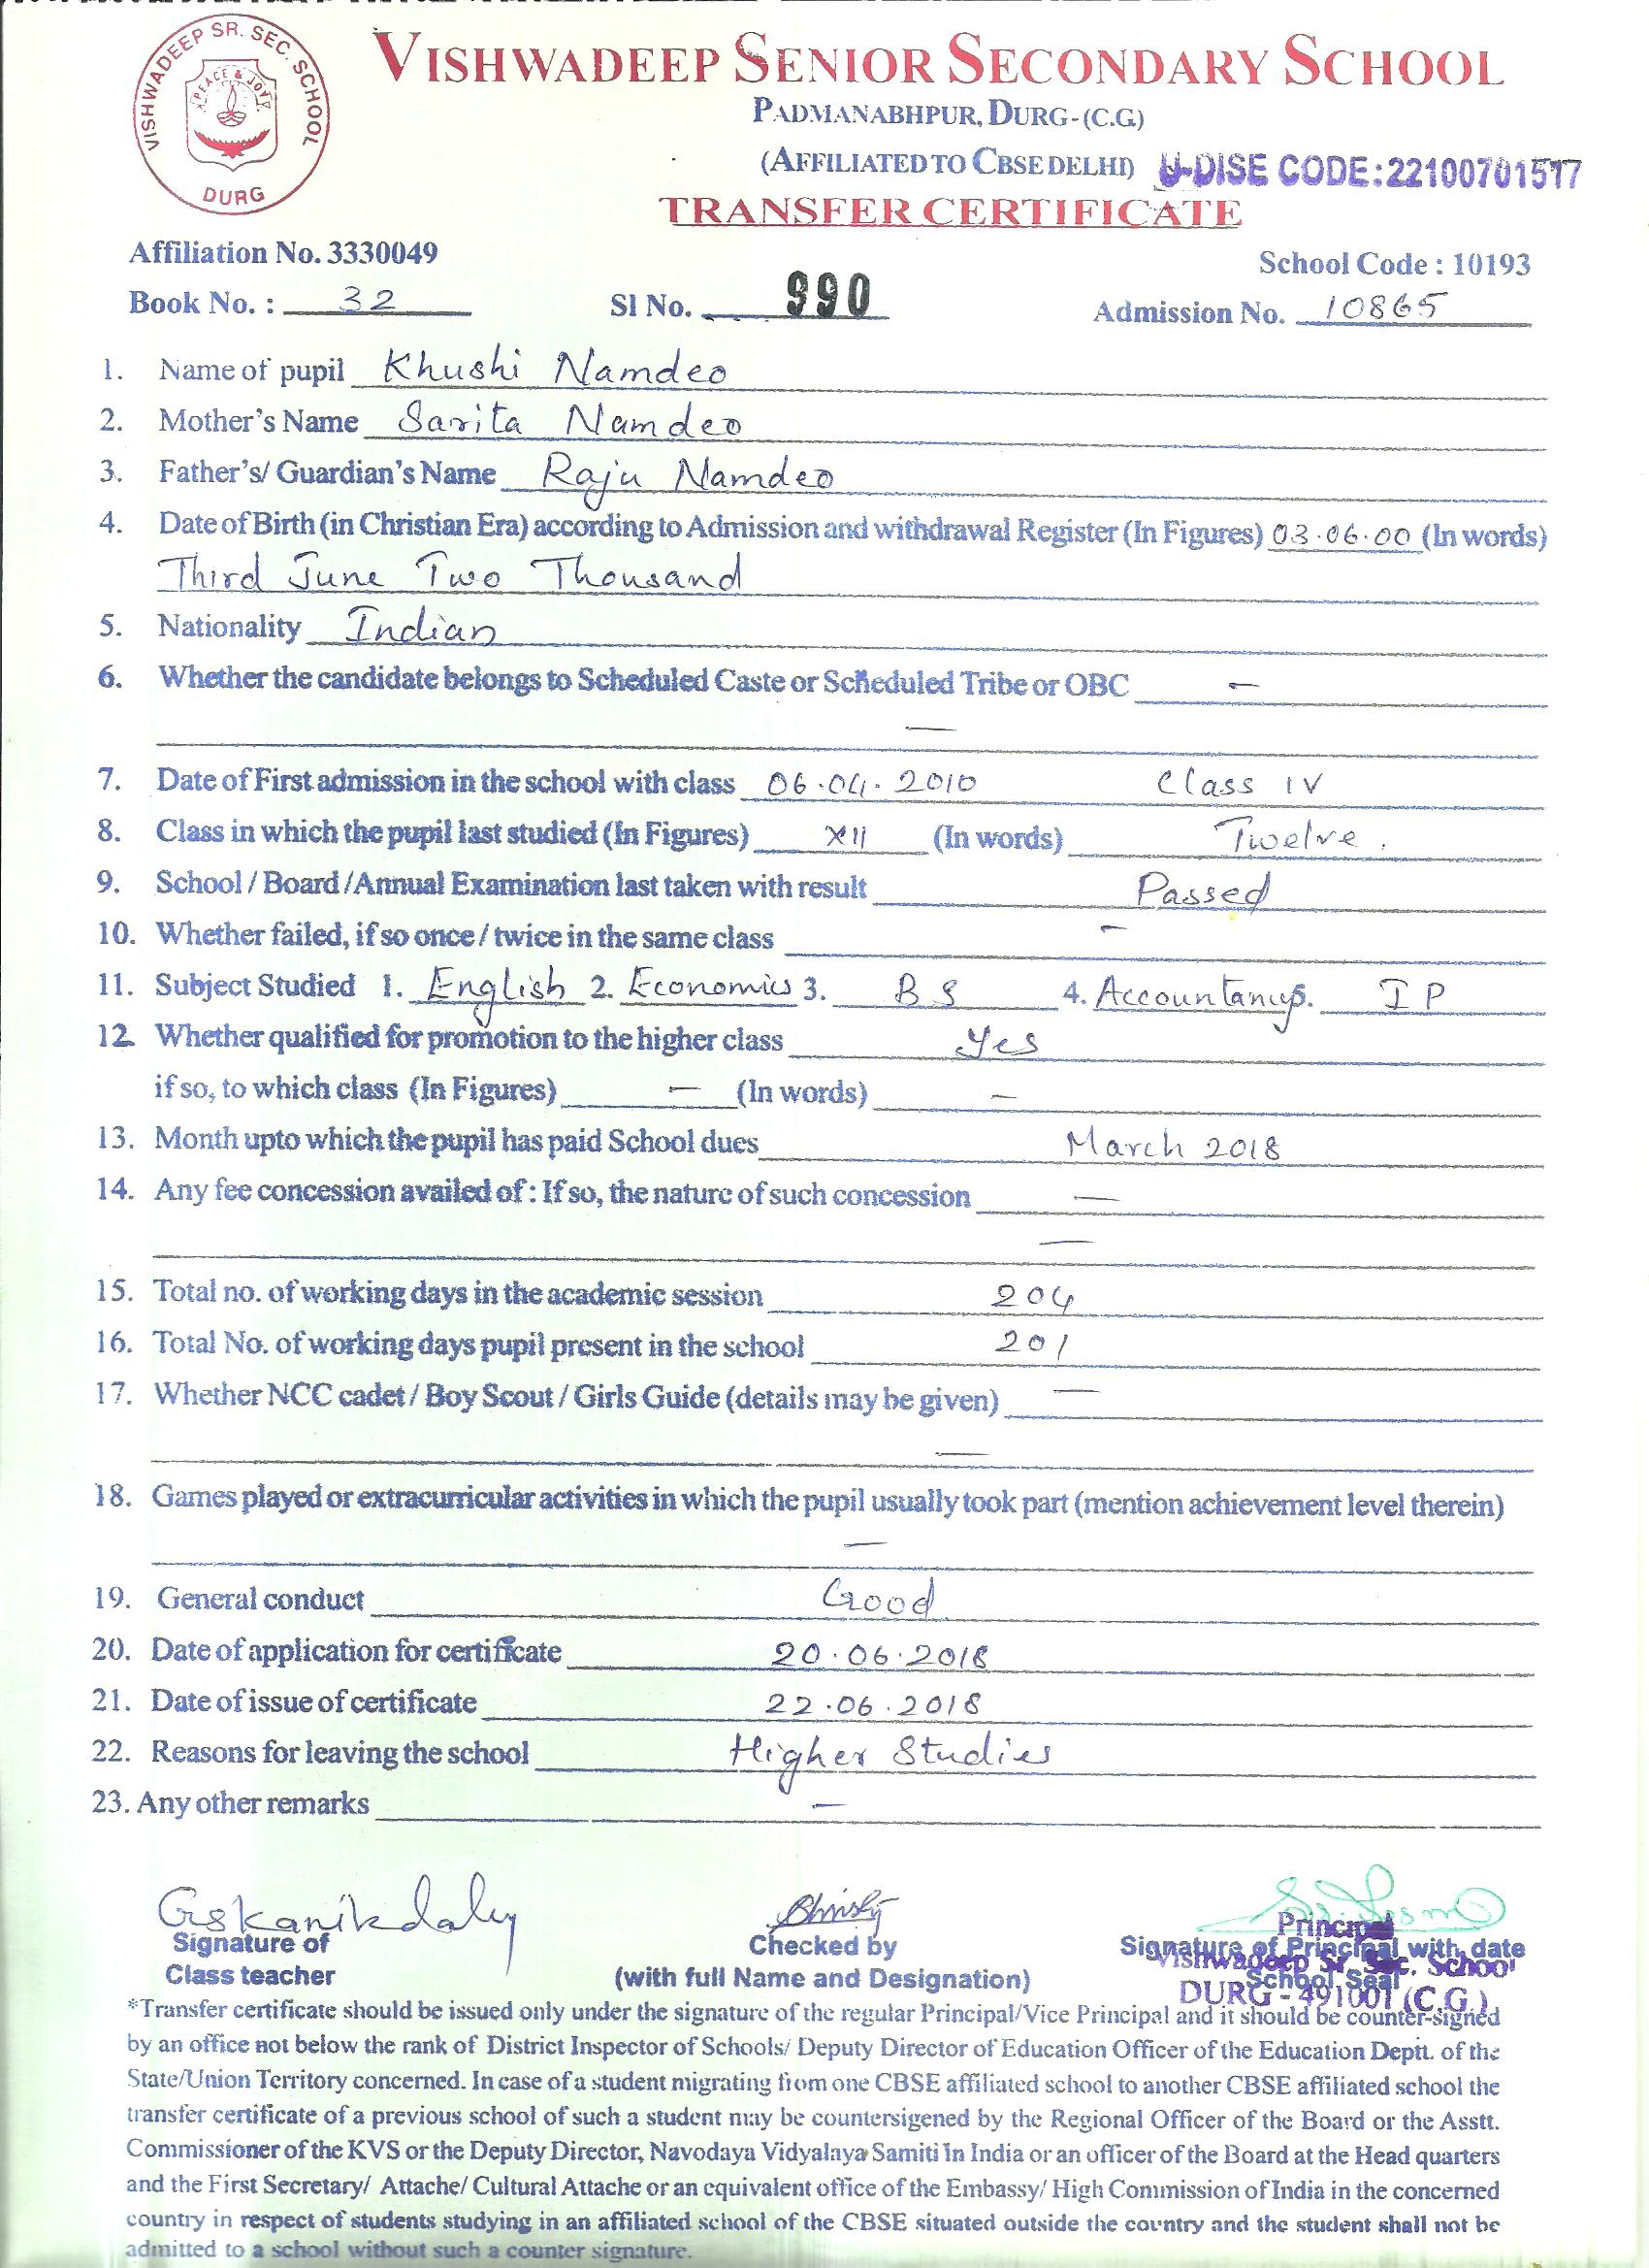 VISHWADEEP SR. SEC. SCHOOL
PEACE & JOY
DURG
VISHWADEEP SENIOR SECONDARY SCHOOL
PADMANABHPUR, DURG-(C.G.)
(AFFILIATED TO CBSE DELHI) U-DISE CODE:22100701517
TRANSFER CERTIFICATE
Affiliation No. 3330049 School Code : 10193
Book No. : 32 Sl No. 990 Admission No. 10865
1. Name of pupil Khushi Namdeo
2. Mother's Name Sarita Namdeo
3. Father's/ Guardian's Name Raju Namdeo
4. Date of Birth (in Christian Era) according to Admission and withdrawal Register (In Figures) 03.06.00 (In words)
Third June Two Thousand
5. Nationality Indian
6. Whether the candidate belongs to Scheduled Caste or Scheduled Tribe or OBC —
—
7. Date of First admission in the school with class 06.04.2010 Class IV
8. Class in which the pupil last studied (In Figures) XII (In words) Twelve.
9. School / Board /Annual Examination last taken with result Passed
10. Whether failed, if so once / twice in the same class —
11. Subject Studied 1. English 2. Economics 3. B S 4. Accountancy 5. I P
12. Whether qualified for promotion to the higher class Yes
if so, to which class (In Figures) — (In words) —
13. Month upto which the pupil has paid School dues March 2018
14. Any fee concession availed of : If so, the nature of such concession —
—
15. Total no. of working days in the academic session 204
16. Total No. of working days pupil present in the school 201
17. Whether NCC cadet / Boy Scout / Girls Guide (details may be given) —
—
18. Games played or extracurricular activities in which the pupil usually took part (mention achievement level therein)
—
19. General conduct Good
20. Date of application for certificate 20.06.2018
21. Date of issue of certificate 22.06.2018
22. Reasons for leaving the school Higher Studies
23. Any other remarks —
Principal
Signature of Checked by Signature of Principal with date
Vishwadeep Sr. Sec. School
Class teacher (with full Name and Designation) School Seal
DURG - 491001 (C.G.)
*Transfer certificate should be issued only under the signature of the regular Principal/Vice Principal and it should be counter-signed
by an office not below the rank of District Inspector of Schools/ Deputy Director of Education Officer of the Education Deptt. of the
State/Union Territory concerned. In case of a student migrating from one CBSE affiliated school to another CBSE affiliated school the
transfer certificate of a previous school of such a student may be countersigened by the Regional Officer of the Board or the Asstt.
Commissioner of the KVS or the Deputy Director, Navodaya Vidyalaya Samiti in India or an officer of the Board at the Head quarters
and the First Secretary/ Attache/ Cultural Attache or an equivalent office of the Embassy/ High Commission of India in the concerned
country in respect of students studying in an affiliated school of the CBSE situated outside the country and the student shall not be
admitted to a school without such a counter signature.